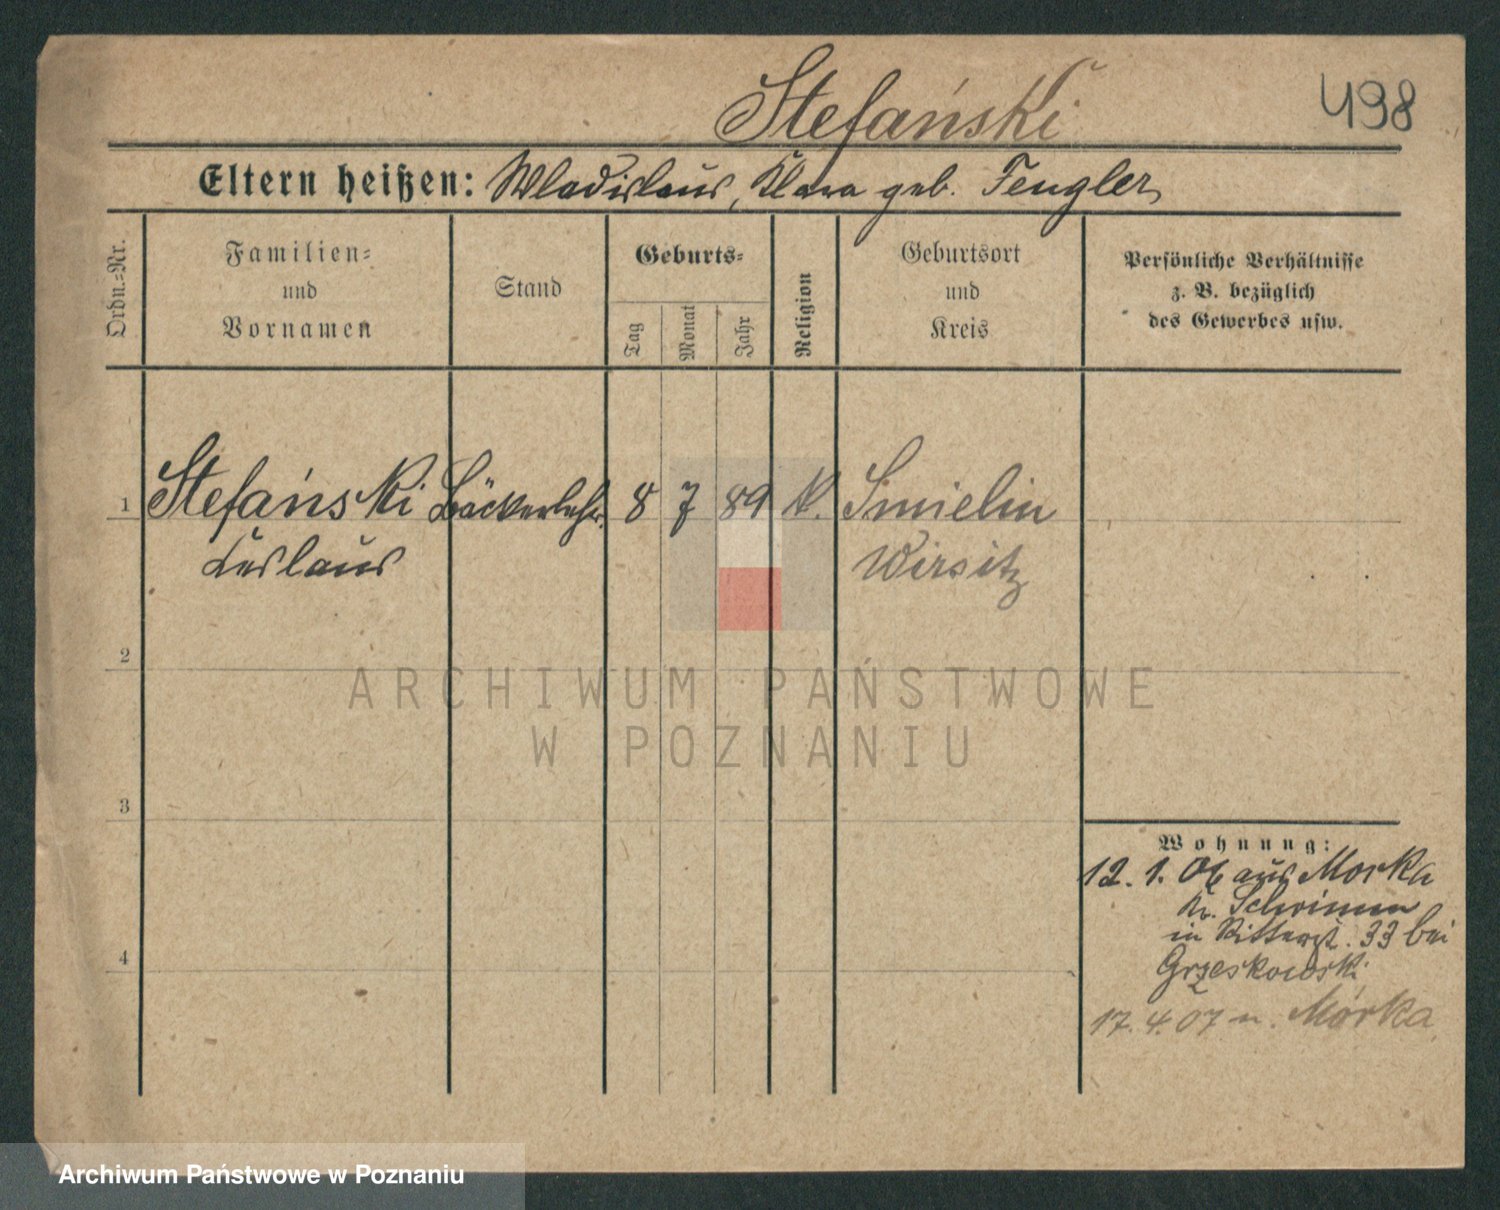 Stefański
498
Eltern heißen: Wladislaus, Klara geb. Fengler
Ordn.-Nr.
Familien-
und
Vornamen
Stand
Geburts-
Tag
Monat
Jahr
Religion
Geburtsort
und
Kreis
Persönliche Verhältnisse
z. B. bezüglich
des Gewerbes usw.
1 Stefański Bäckerlehr. 8 7 89 k. Smielin
Wirsitz
2
3
4
Wohnung:
12. 1. 06 aus Morka
Kr. Schrimm
in Ritterst. 33 bei
Grzeskowski
17. 4. 07 n. Mórka
ARCHIWUM PAŃSTWOWE
W POZNANIU
Archiwum Państwowe w Poznaniu